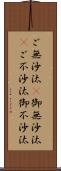 ご無沙汰 御無沙汰
ご不沙汰御不沙汰